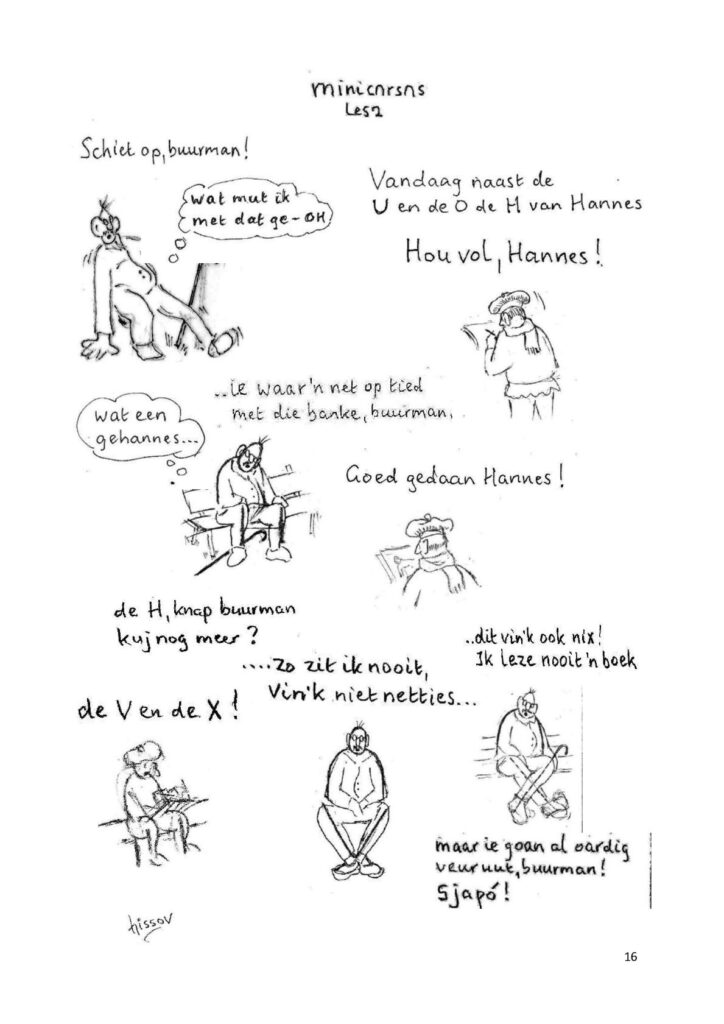 minicursus
Les 2
Schiet op, buurman!
wat mut ik
met dat ge-OH
Vandaag naast de
U en de O de H van Hannes
Hou vol, Hannes!
..ie waar'n net op tied
met die banke, buurman.
wat een
gehannes...
Goed gedaan Hannes!
de H, knap buurman
kuj nog meer?
....Zo zit ik nooit,
Vin'k niet netties...
..dit vin'k ook nix!
Ik leze nooit 'n boek
de V en de X!
maar ie goan al oardig
veuruut, buurman!
Sjapó!
hissov
16